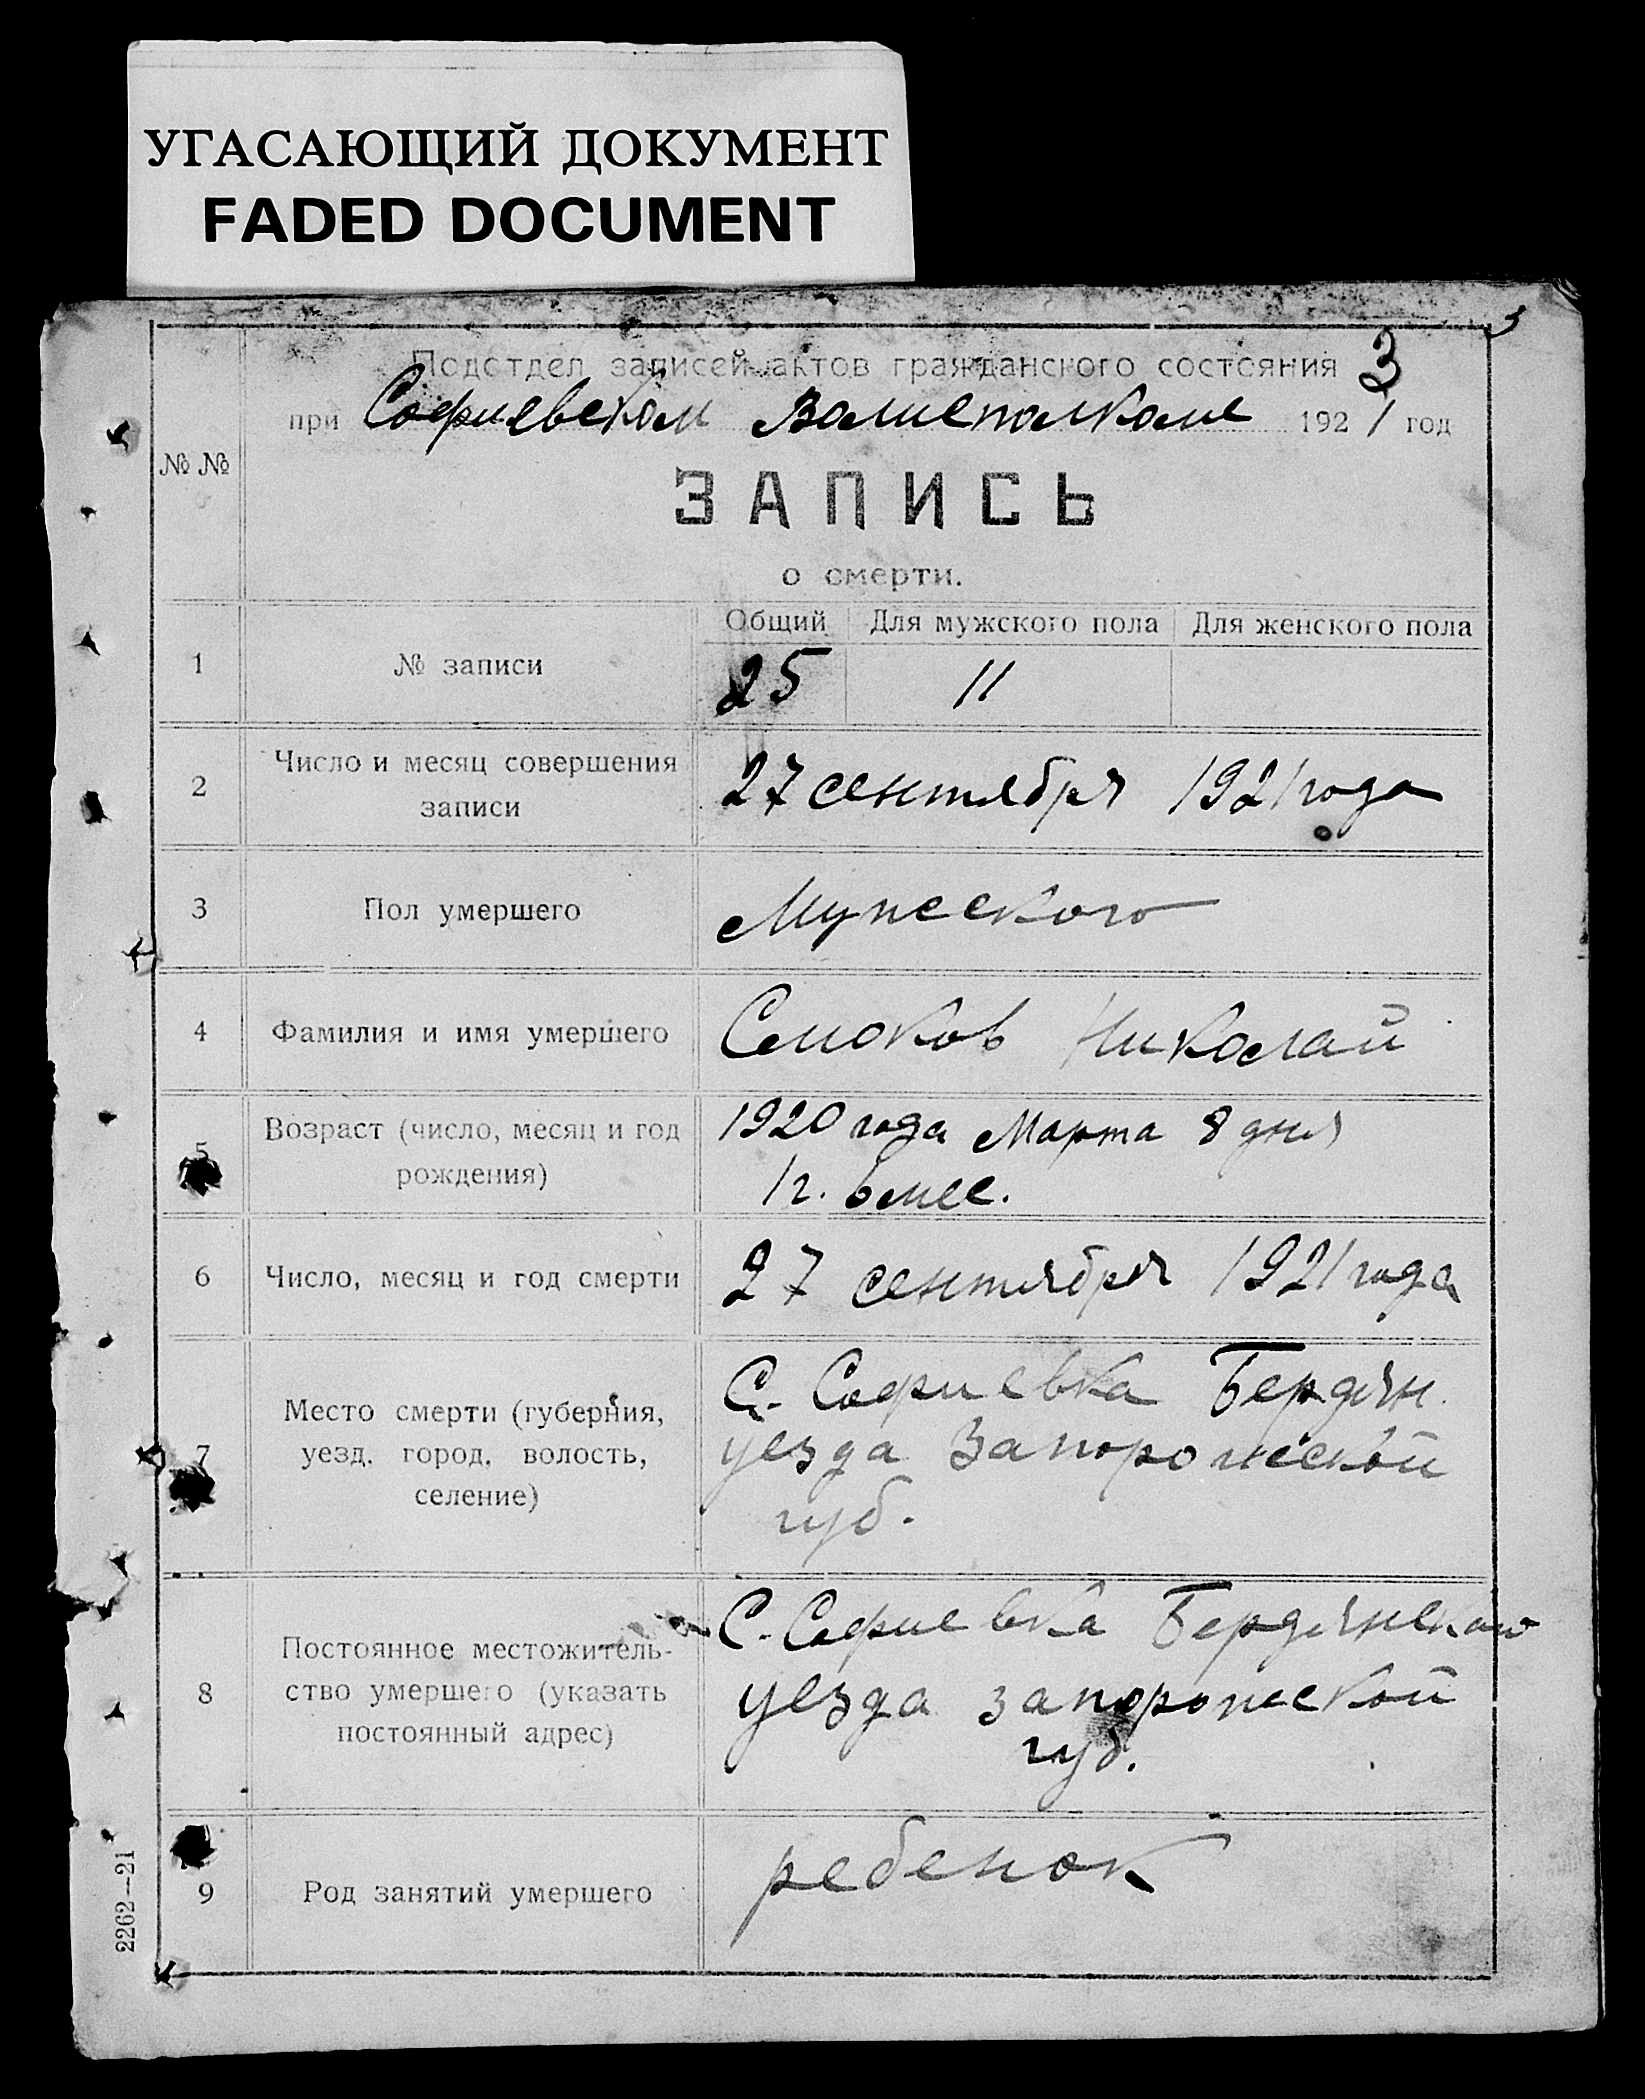 УГАСАЮЩИЙ ДОКУМЕНТ
FADED DOCUMENT
3
Подотдел записей актов гражданского состояния 3
при Софиевском Волисполкоме 1921 год
№ №
ЗАПИСЬ
о смерти.
Общий Для мужского пола Для женского пола
1 № записи 25 11
2 Число и месяц совершения
записи
27 сентября 1921 года
3 Пол умершего Мужеского
4 Фамилия и имя умершего Николай
5 Возраст (число, месяц и год
рождения)
1920 года Марта 8 дня
1 г. 6 мес.
6 Число, месяц и год смерти 27 сентября 1921 года
7 Место смерти (губерния,
уезд, город, волость,
селение)
С. Софиевка Бердян.
уезда Запорожской
губ.
8 Постоянное местожитель-
ство умершего (указать
постоянный адрес)
С. Софиевка Бердянского
уезда запорожской
губ.
9 Род занятий умершего ребенок
2262—21